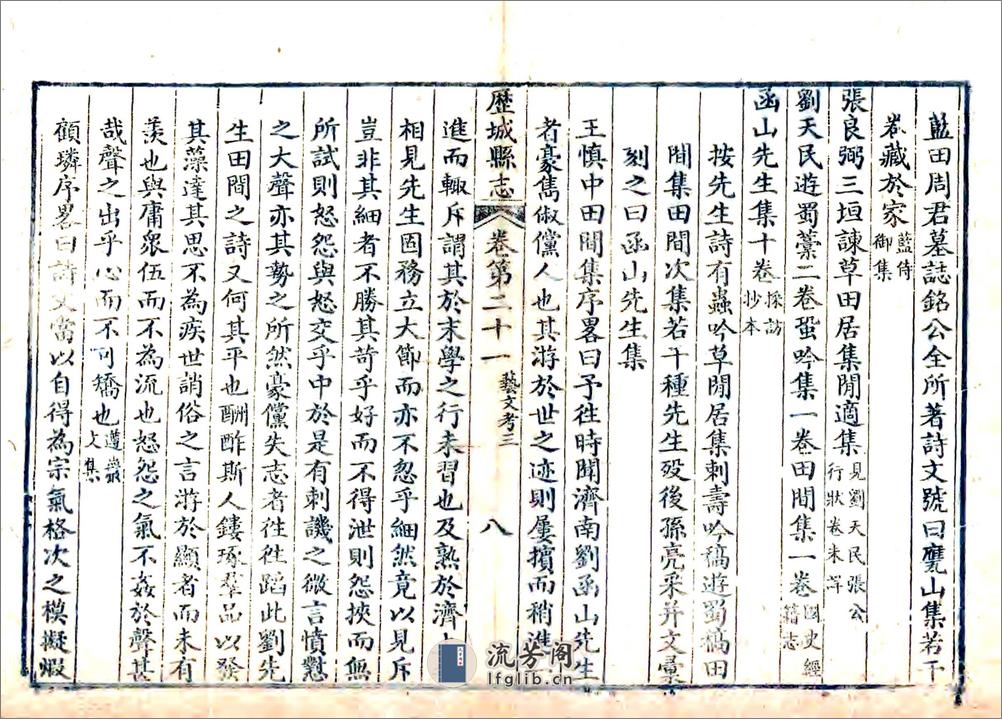 藍田周君墓誌銘公全所著詩文號曰䕫山集若干
卷藏於家藍侍御集
張良弼三垣諫草田居集閒適集見劉天民張公行狀卷未詳
劉天民遊蜀藁二卷蛩吟集一卷田間集一卷國史經籍志
函山先生集十卷採訪抄本
按先生詩有蟲吟草閒居集刺壽吟稿遊蜀稿田
間集田間次集若干種先生歿後孫亮采并文彙
刻之曰函山先生集
王慎中田間集序畧曰予徃時聞濟南劉函山先生
者豪雋俶儻人也其游於世之迹則屢擯而稍進
歷城縣志 卷第二十一 藝文考三 八
進而輙斥謂其於末學之行未習也及熟於濟
相見先生固務立大節而亦不忽乎細然竟以見斥
豈非其細者不勝其苛乎好而不得泄則怨挾而無
所試則怒怨與怒交乎中於是有刺譏之微言憤懟
之大聲亦其勢之所然豪儻失志者徃徃蹈此劉先
生田間之詩又何其平也酬酢斯人鏤琢羣品以發
其藻達其思不為疾世誚俗之言游於顯者而未有
羨也與庸衆伍而不為流也怨怒之氣不姦於聲甚
哉聲之出乎心而不可矯也遵巖文集
顧璘序畧曰詩文當以自得為宗氣格次之模擬煆
流芳阁
lfglib.cn